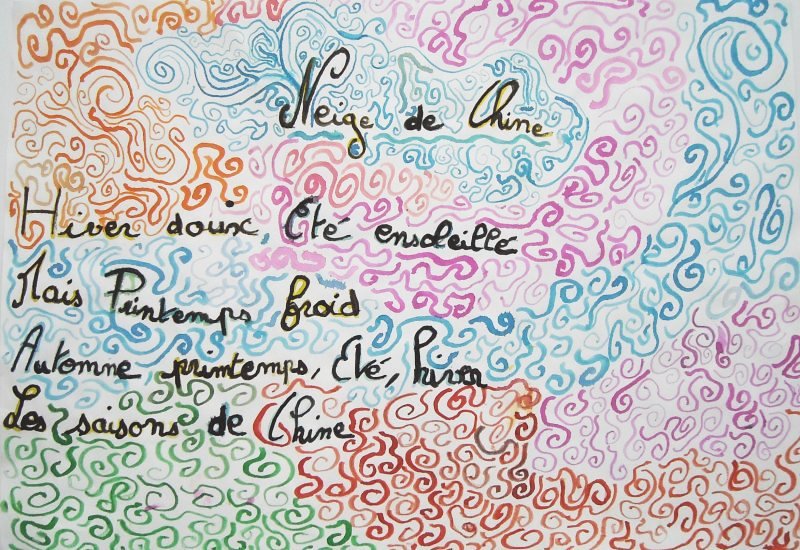 Neige de Chine
Hiver doux, Eté ensoleillé
Mais Printemps froid
Automne printemps, Eté, hiver
Les saisons de Chine